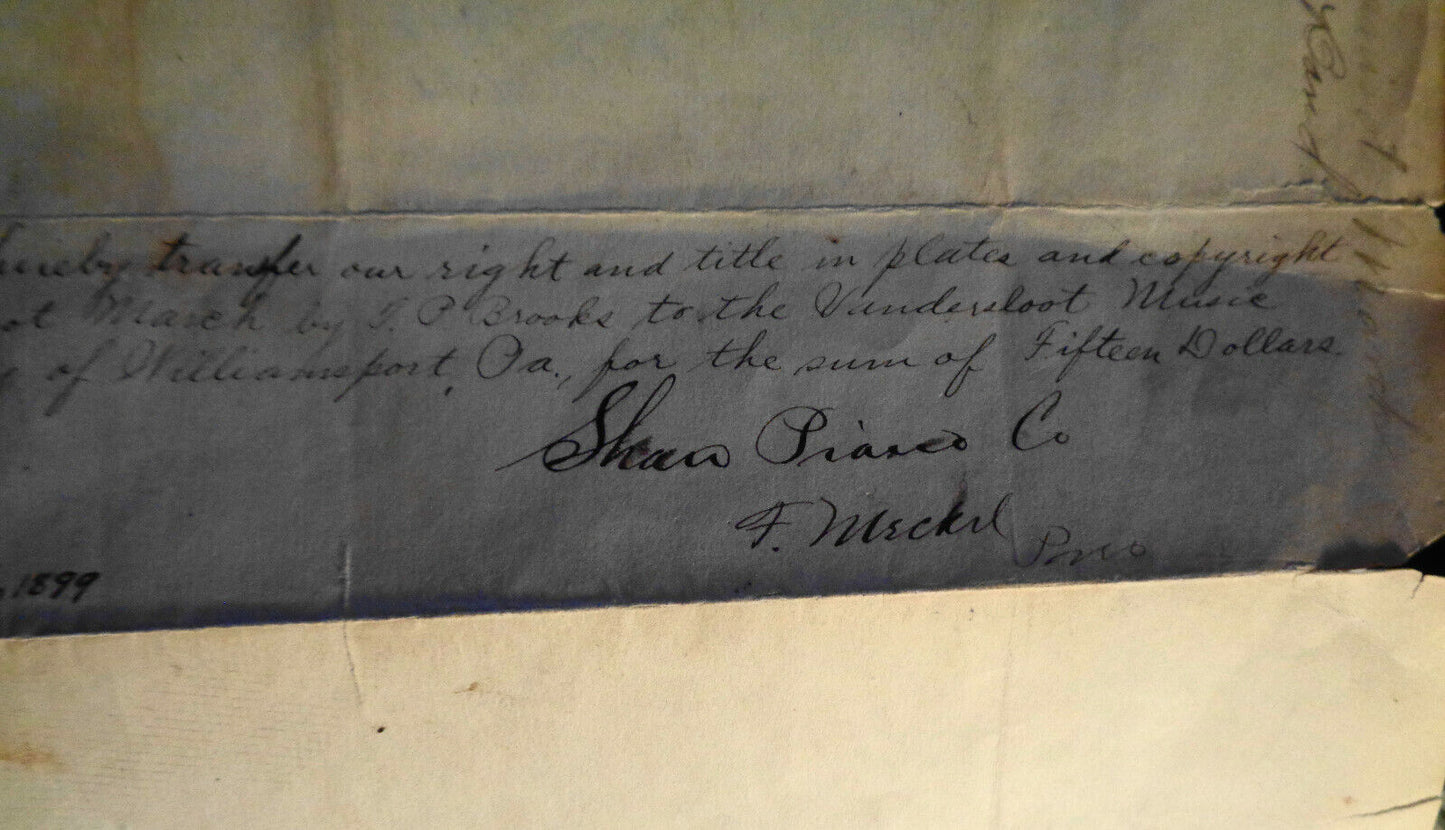 hereby transfer our right and title in plates and copyright
ot March by T. P. Brooks to the Vandersloot Music
of Williamsport, Pa., for the sum of Fifteen Dollars.
Shaw Piano Co
F. Meckel
1899